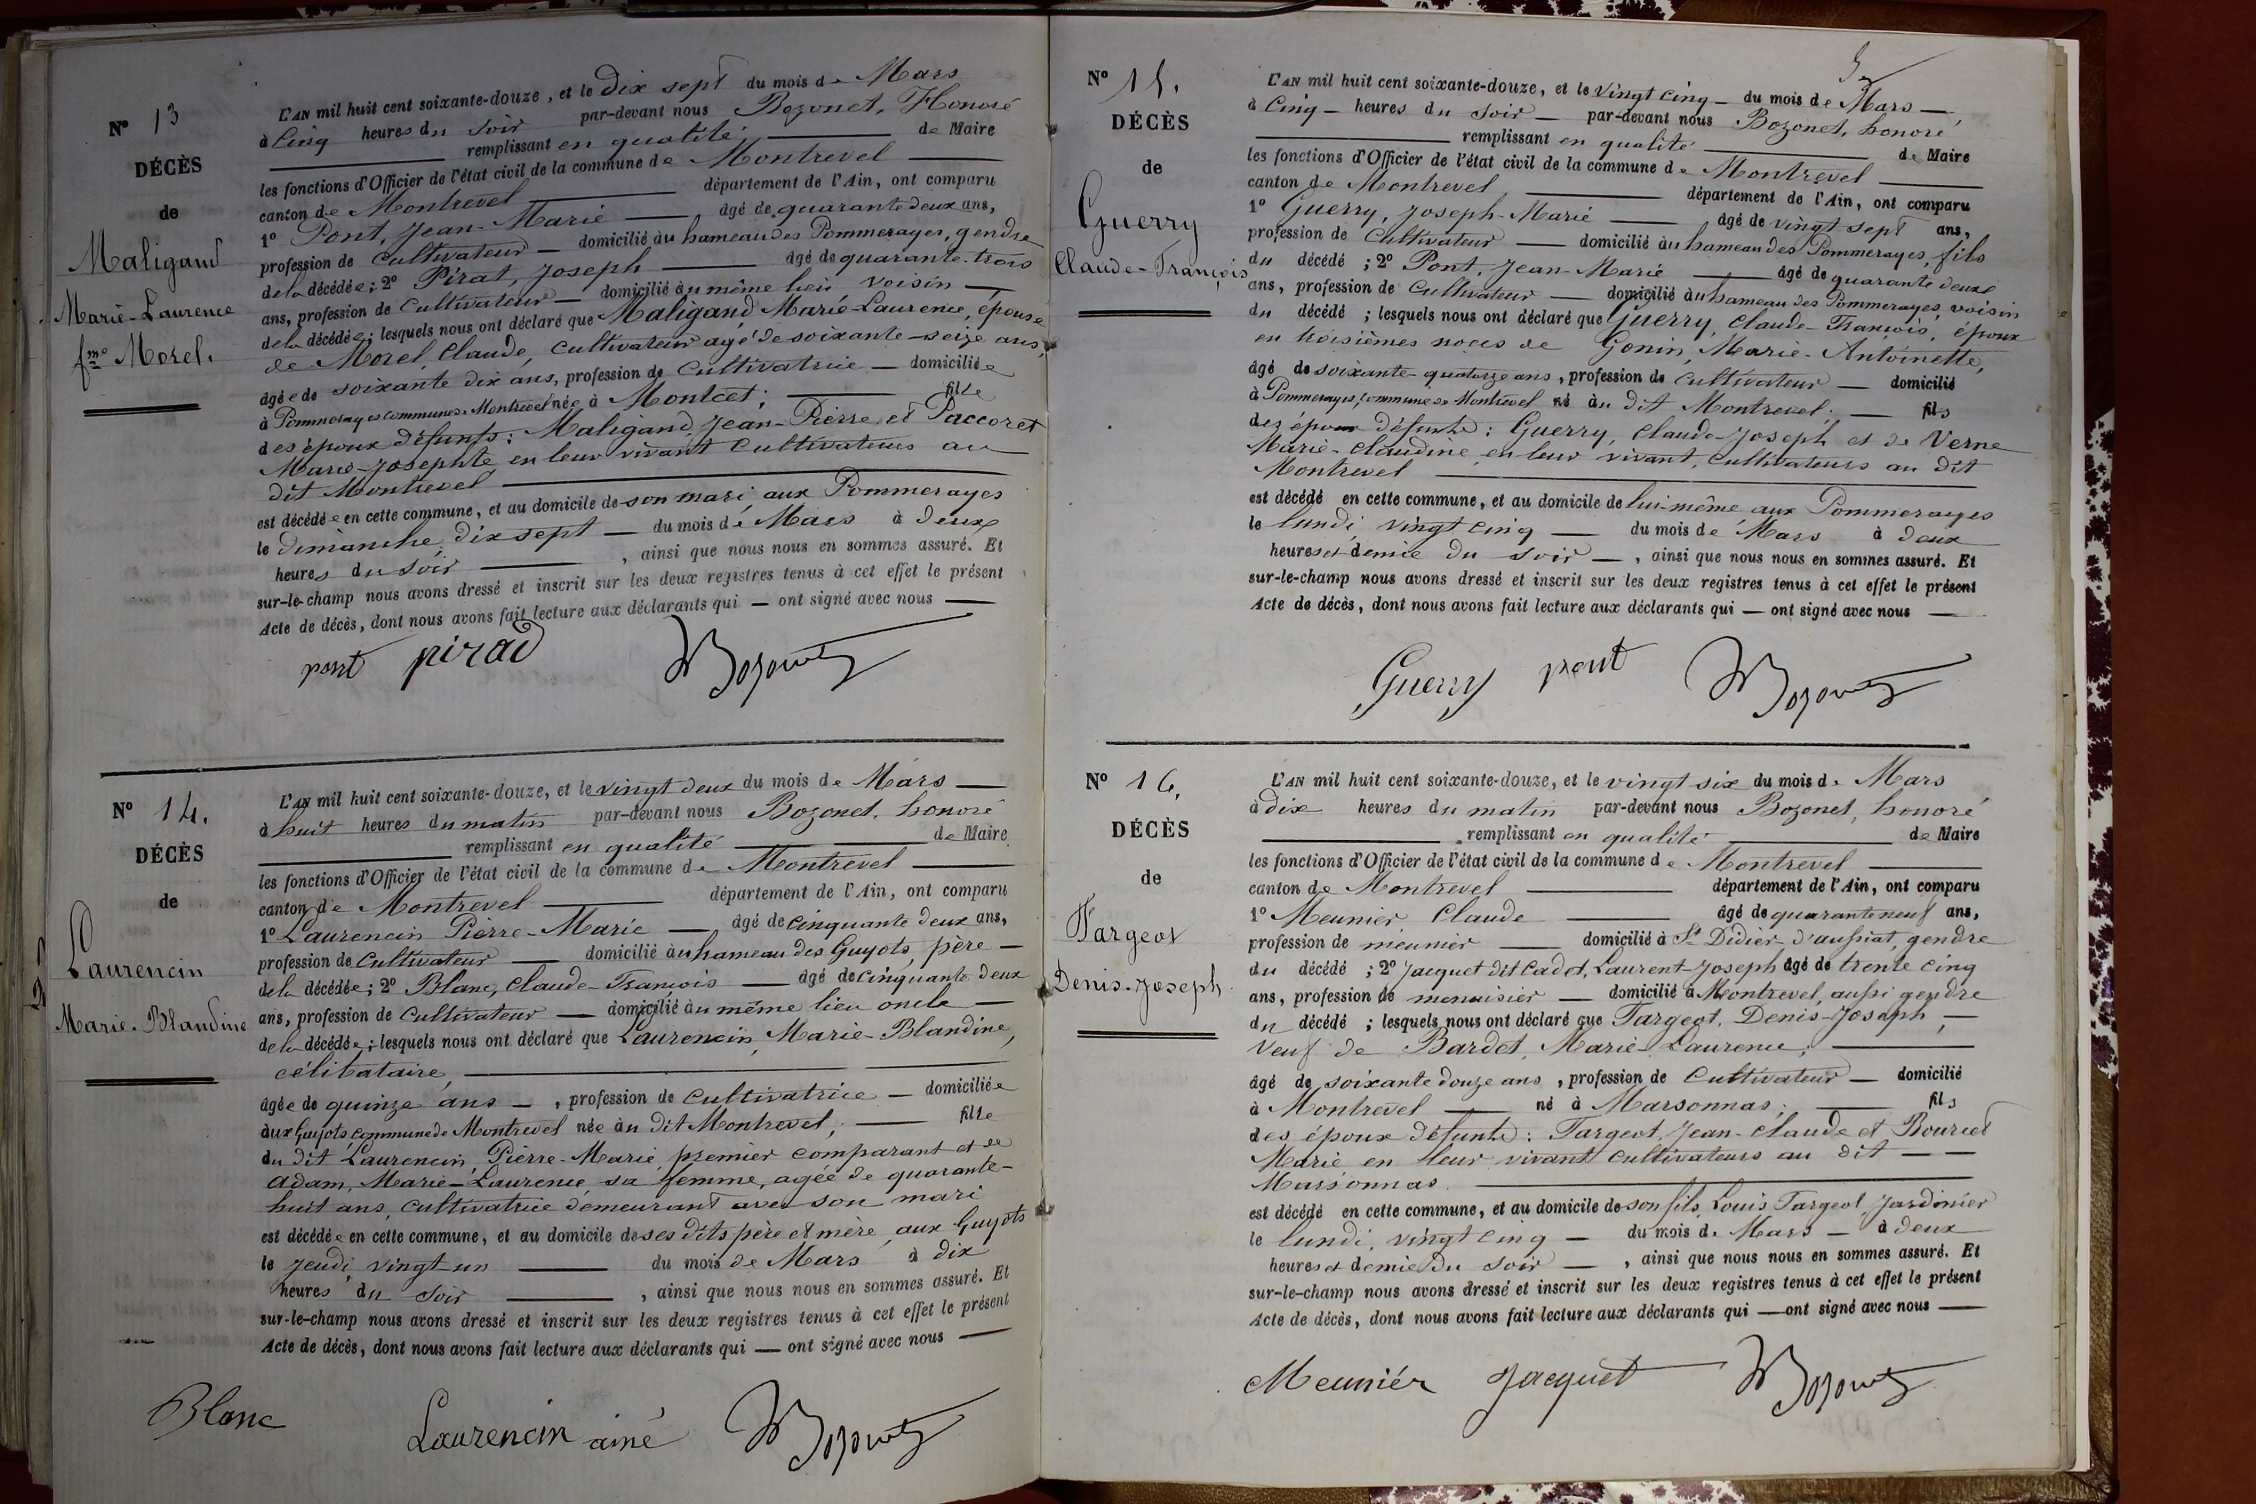 N° 13
DÉCÈS
de
Maligand
Marie-Laurence
fme Morel.
L'AN mil huit cent soixante-douze, et le dix sept du mois de Mars
à cinq heures du soir par-devant nous Bozonet, Honoré
remplissant en qualité de Maire
les fonctions d'Officier de l'état civil de la commune de Montrevel
canton de Montrevel département de l'Ain, ont comparu
1° Pont, Jean-Marie âgé de quarante deux ans,
profession de cultivateur domicilié au hameau des Pommerayes, gendre
de la décédée; 2° Pirat, Joseph âgé de quarante-trois
ans, profession de cultivateur domicilié au même lieu voisin
de la décédée; lesquels nous ont déclaré que Maligand Marie-Laurence, épouse
de Morel, Claude, cultivateur agé de soixante-seize ans,
âgée de soixante dix ans, profession de cultivatrice domiciliée
à Pommerayes commune de Montrevel née à Montcet; fille
des époux défunts: Maligand, Jean-Pierre et Paccoret
Marie-Josephte, en leur vivant cultivateurs au
dit Montrevel
est décédée en cette commune, et au domicile de son mari aux Pommerayes
le dimanche, dix sept du mois de Mars à deux
heures du soir, ainsi que nous nous en sommes assuré. Et
sur-le-champ nous avons dressé et inscrit sur les deux registres tenus à cet effet le présent
Acte de décès, dont nous avons fait lecture aux déclarants qui ont signé avec nous
pont pirad Bozonet
N° 14.
DÉCÈS
de
Laurencin
Marie-Blandine
L'AN mil huit cent soixante-douze, et le vingt deux du mois de Mars
à huit heures du matin par-devant nous Bozonet, honoré
remplissant en qualité de Maire
les fonctions d'Officier de l'état civil de la commune de Montrevel
canton de Montrevel département de l'Ain, ont comparu
1° Laurencin Pierre-Marie âgé de cinquante deux ans,
profession de cultivateur domicilié au hameau des Guyots, père
de la décédée; 2° Blanc, Claude-François âgé de cinquante deux
ans, profession de cultivateur domicilié au même lieu oncle
de la décédée; lesquels nous ont déclaré que Laurencin, Marie-Blandine,
célibataire,
âgée de quinze ans, profession de cultivatrice domiciliée
aux Guyots, commune de Montrevel née au dit Montrevel; fille
du dit Laurencin, Pierre-Marie, premier comparant et de
Adam, Marie-Laurence sa femme, agée de quarante-
huit ans, cultivatrice demeurant avec son mari
est décédée en cette commune, et au domicile de ses dits père et mère, aux Guyots
le jeudi vingt un du mois de Mars à dix
heures du soir, ainsi que nous nous en sommes assuré. Et
sur-le-champ nous avons dressé et inscrit sur les deux registres tenus à cet effet le présent
Acte de décès, dont nous avons fait lecture aux déclarants qui ont signé avec nous
Blanc Laurencin ainé Bozonet
N° 15.
DÉCÈS
de
Guerry
Claude-François
L'AN mil huit cent soixante-douze, et le vingt cinq du mois de Mars,
à cinq heures du soir par-devant nous Bozonet, honoré
remplissant en qualité de Maire
les fonctions d'Officier de l'état civil de la commune de Montrevel
canton de Montrevel, département de l'Ain, ont comparu
1° Guerry, Joseph-Marie âgé de vingt sept ans,
profession de cultivateur domicilié au hameau des Pommerayes, fils
du décédé; 2° Pont, Jean-Marie âgé de quarante deux
ans, profession de cultivateur domicilié au hameau des Pommerayes, voisin
du décédé; lesquels nous ont déclaré que Guerry, Claude-François, époux
en troisièmes noces de Gonin, Marie-Antoinette,
âgé de soixante-quatorze ans, profession de cultivateur domicilié
à Pommerayes, commune de Montrevel né au dit Montrevel; fils
des époux défunts: Guerry, Claude-Joseph et de Verne
Marie-Claudine, en leur vivant, cultivateurs au dit
Montrevel
est décédé en cette commune, et au domicile de lui-même aux Pommerayes
le lundi, vingt cinq du mois de Mars à deux
heures et demie du soir, ainsi que nous nous en sommes assuré. Et
sur-le-champ nous avons dressé et inscrit sur les deux registres tenus à cet effet le présent
Acte de décès, dont nous avons fait lecture aux déclarants qui ont signé avec nous
Guerry pont Bozonet
N° 16.
DÉCÈS
de
Fargeot
Denis-Joseph
L'AN mil huit cent soixante-douze, et le vingt six du mois de Mars
à dix heures du matin par-devant nous Bozonet, honoré
remplissant en qualité de Maire
les fonctions d'Officier de l'état civil de la commune de Montrevel
canton de Montrevel département de l'Ain, ont comparu
1° Meunier Claude âgé de quarante neuf ans,
profession de meunier domicilié à St Didier d'aussiat, gendre
du décédé; 2° Jacquet dit Cadet, Laurent-Joseph âgé de trente cinq
ans, profession de menuisier domicilié à Montrevel, aussi gendre
du décédé; lesquels nous ont déclaré que Fargeot, Denis-Joseph,
veuf de Bardet, Marie-Laurence;
âgé de soixante douze ans, profession de cultivateur domicilié
à Montrevel né à Marsonnas; fils
des époux défunts: Fargeot, Jean-Claude et Bourcet
Marie en leur vivant cultivateurs au dit
Marsonnas.
est décédé en cette commune, et au domicile de son fils, Louis Fargeot, jardinier
le lundi, vingt cinq du mois de Mars à deux
heures et demie du soir, ainsi que nous nous en sommes assuré. Et
sur-le-champ nous avons dressé et inscrit sur les deux registres tenus à cet effet le présent
Acte de décès, dont nous avons fait lecture aux déclarants qui ont signé avec nous
Meuniér Jacquet Bozonet